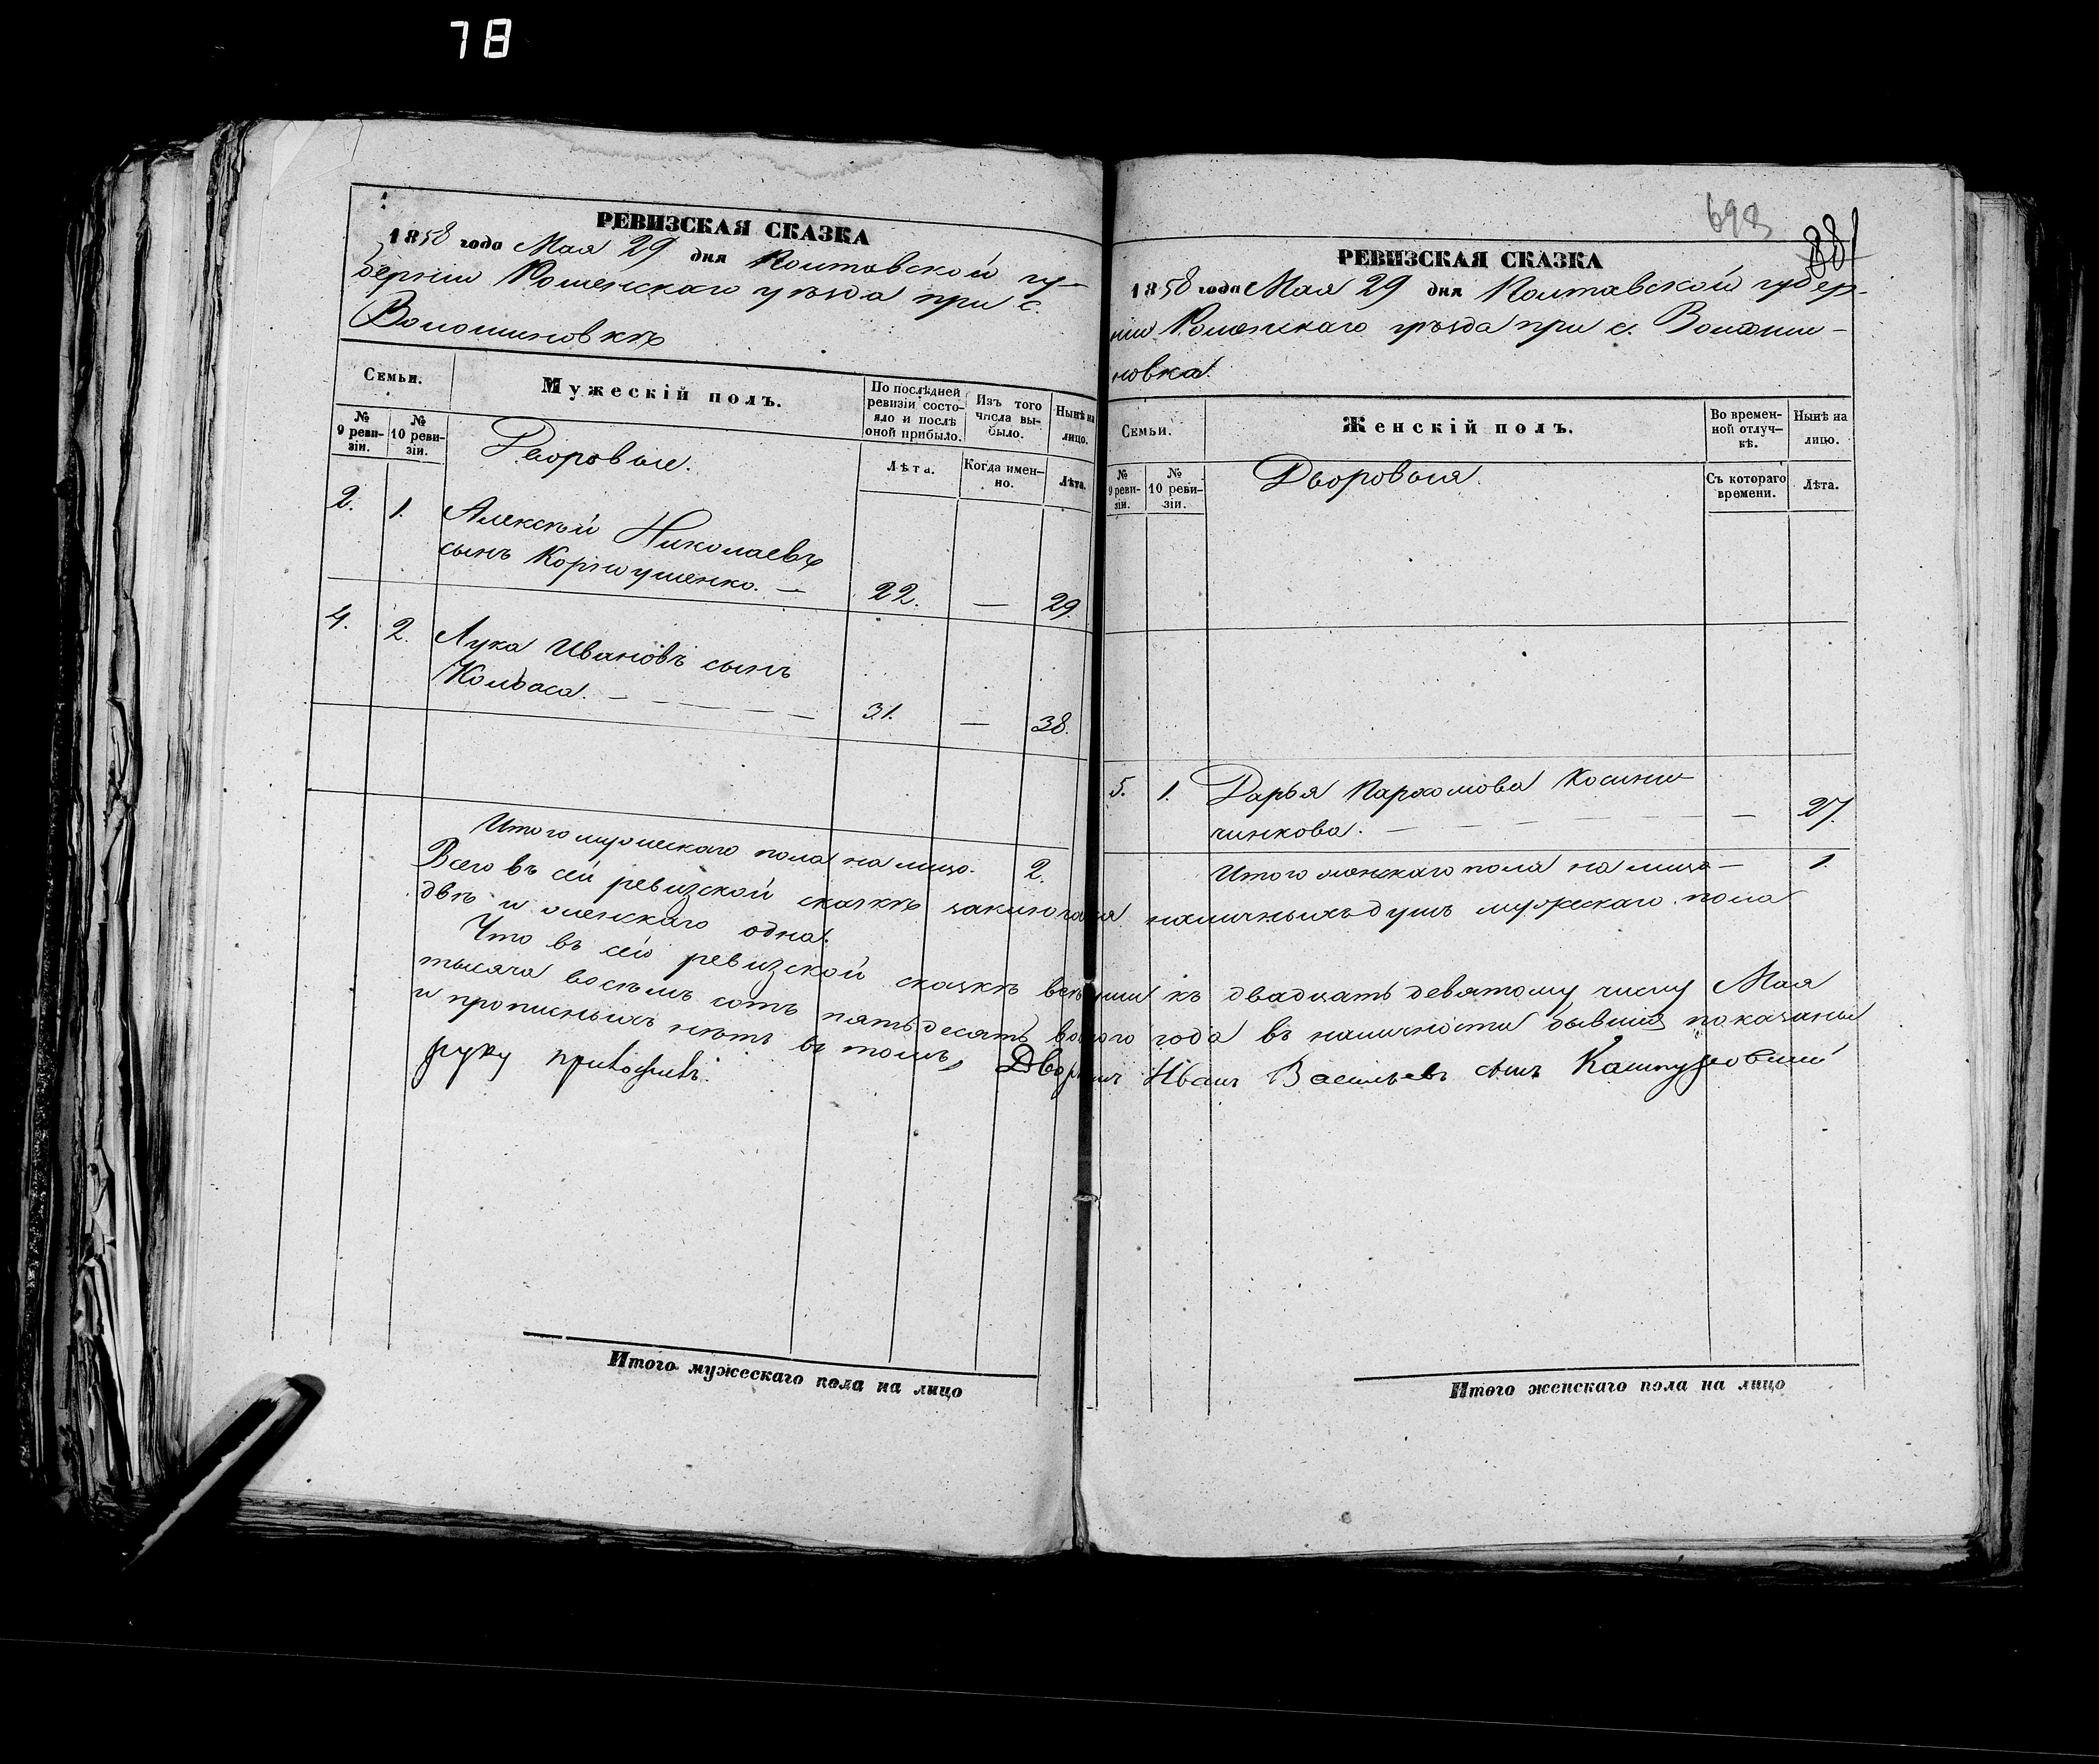 78
РЕВИЗСКАЯ СКАЗКА
1858 года Мая 29 дня Полтавской гу-
берніи Роменскаго уѣзда при с.
Волошиновкѣ
Семьи.
Мужескій полъ.
По послѣдней ревизіи состо-яло и послѣ оной прибыло.
Изъ того числа вы-было.
Нынѣ на лицо.
№ 9 реви-зіи.
№ 10 реви-зіи.
Лѣта.
Когда имен-но.
Лѣта.
Дворовые.
2. 1. Алексѣй Николаевъ
сынъ Коржушенко. — 22. — 29.
4. 2. Лука Ивановъ сынъ
Колбаса. — 31. — 38.
Итого мужескаго пола на лицо. 2.
693
881
РЕВИЗСКАЯ СКАЗКА
1858 года Мая 29 дня Полтавской губер-
ніи Роменскаго уѣзда при с. Волоши-
новка.
Семьи.
Женскій полъ.
Во времен-ной отлуч-кѣ.
Нынѣ на лицо.
№ 9 реви-зіи.
№ 10 реви-зіи.
Съ котораго времени.
Лѣта.
Дворовыя.
5. 1. Дарья Пархомова
чинкова. — 27.
Итого женскаго пола на лицо — 1.
Всего въ сей ревизской сказкѣ заключается наличныхъ душъ мужескаго пола
двѣ и женскаго одна.
Что въ сей ревизской сказкѣ всѣ души къ двадцать девятому числу Мая
тысяча восѣмъ сотъ пятьдесятъ года въ наличности бывшія показаны
и прописныхъ нѣтъ въ томъ, Дворянинъ Иванъ Васильевъ сынъ
руку приложилъ.
Итого мужескаго пола на лицо
Итого женскаго пола на лицо